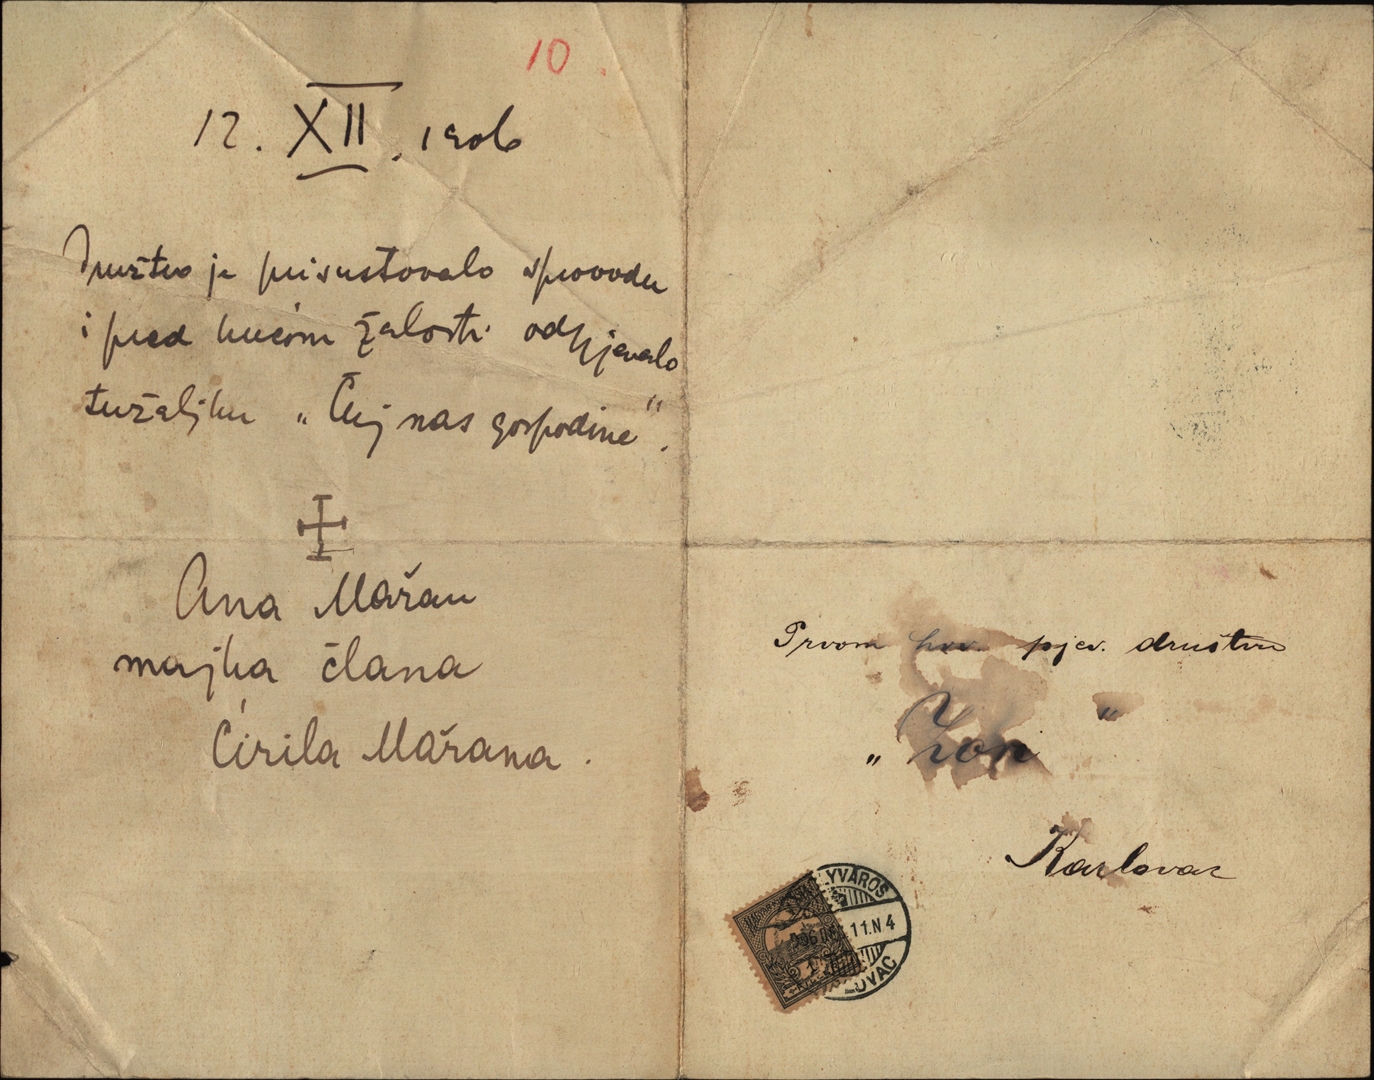 10.
12. XII. 1906
Društvo je prisustovalo sprovodu
i pred kućom žalosti odpjevalo
tužaljku „Čuj nas gospodine".
Ana Mařan
majka člana
Ćirila Mařana.
Prvom hrv. pjev. društvu
„Zori"
Karlovac
LYVÁROS
906 11.N4
LOVAC